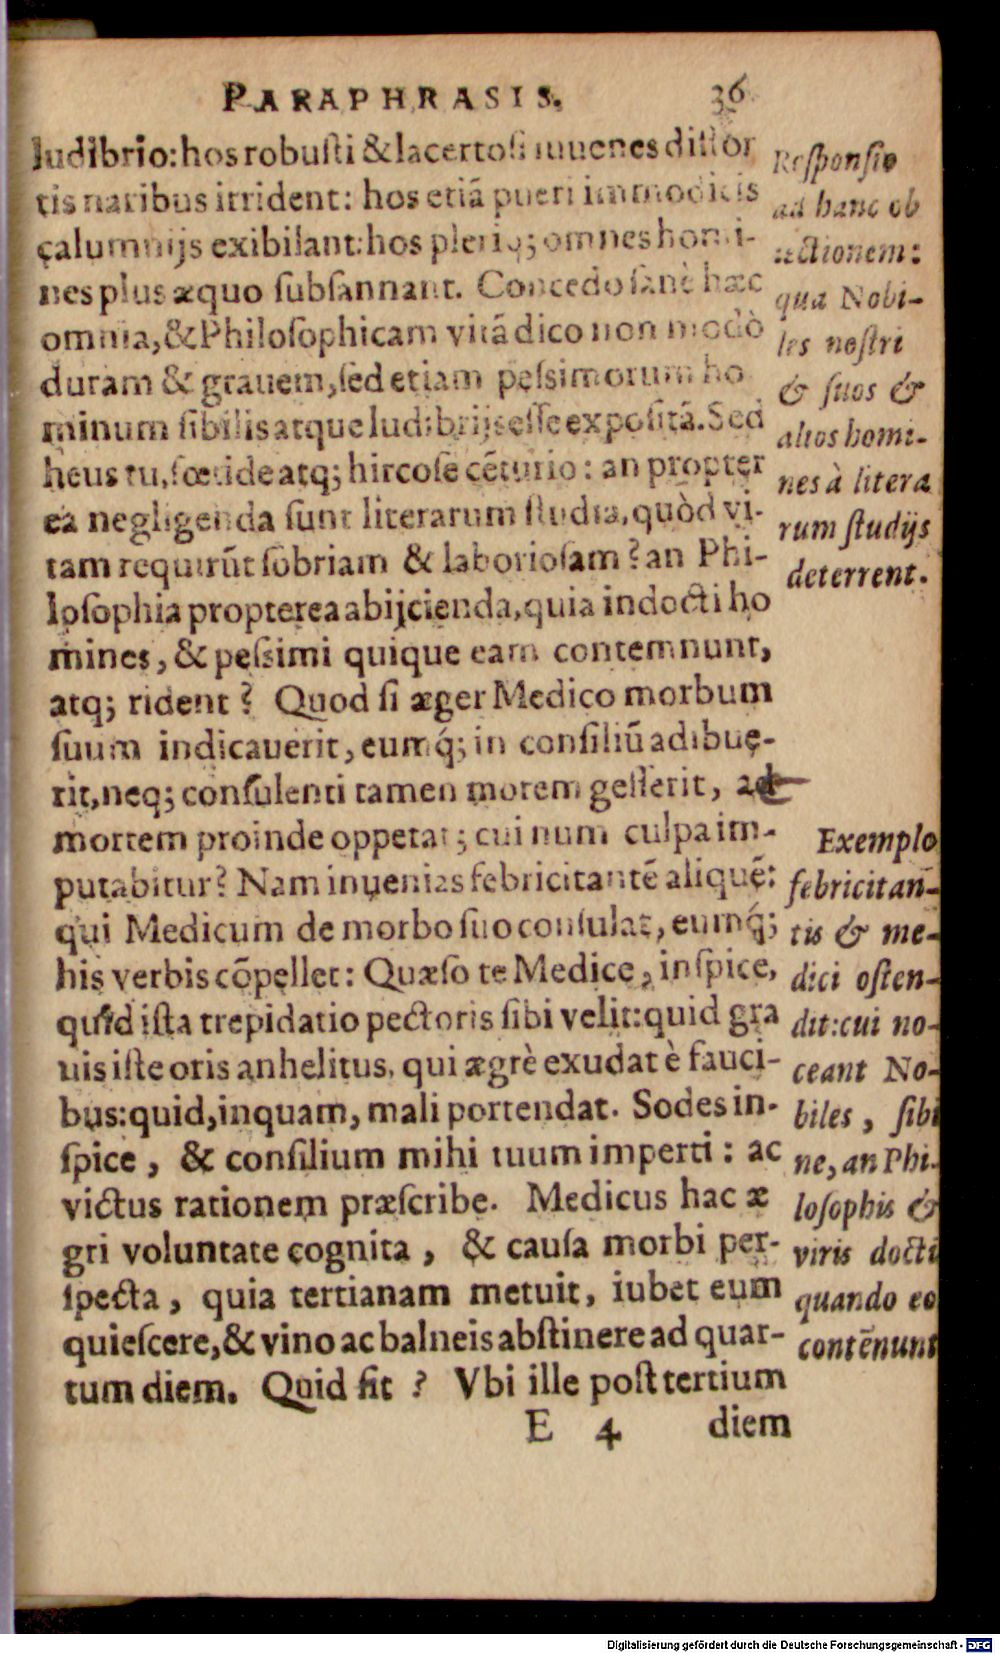 PARAPHRASIS. 36
ludibrio: hos robuſti & lacertoſi iuuenes diſtor
tis naribus irrident: hos etiã pueri immodicis
calumnijs exibilant: hos pleriq; omnes homi-
nes plus æquo ſubſannant. Concedo ſanè hæc
omnia, & Philoſophicam vitã dico non modò
duram & grauem, ſed etiam peſsimorum ho
minum ſibilis atque ludibrijs eſſe expoſitã. Sed
heus tu, fœtide atq; hircoſe cẽturio: an propter
ea negligenda ſunt literarum ſtudia, quòd vi-
tam requirũt ſobriam & laborioſam? an Phi-
loſophia propterea abijcienda, quia indocti ho
mines, & peſsimi quique eam contemnunt,
atq; rident? Quod ſi æger Medico morbum
ſuum indicauerit, eumq́; in conſiliũ adibue-
rit, neq; conſulenti tamen morem geſſerit, ad
mortem proinde oppetat; cui num culpa im-
putabitur? Nam inuenias febricitantẽ aliquẽ:
qui Medicum de morbo ſuo conſulat, eumq́;
his verbis cõpellet: Quæſo te Medice, inſpice,
quid iſta trepidatio pectoris ſibi velit: quid gra
uis iſte oris anhelitus, qui ægrè exudat è fauci-
bus: quid, inquam, mali portendat. Sodes in-
ſpice, & conſilium mihi tuum imperti: ac
victus rationem præſcribe. Medicus hac æ
gri voluntate cognita, & cauſa morbi per-
ſpecta, quia tertianam metuit, iubet eum
quieſcere, & vino ac balneis abſtinere ad quar-
tum diem. Quid ſit? Vbi ille poſt tertium
E 4 diem
Reſponſio
ad hanc ob
iectionem:
qua Nobi-
les noſtri
& ſuos &
alios homi-
nes à litera
rum ſtudijs
deterrent.
Exemplo
febricitan-
tis & me-
dici oſten-
dit: cui no-
ceant No-
biles, ſibi
ne, an Phi-
loſophis &
viris docti
quando eo
contẽnunt
Digitalisierung gefördert durch die Deutsche Forschungsgemeinschaft - DFG